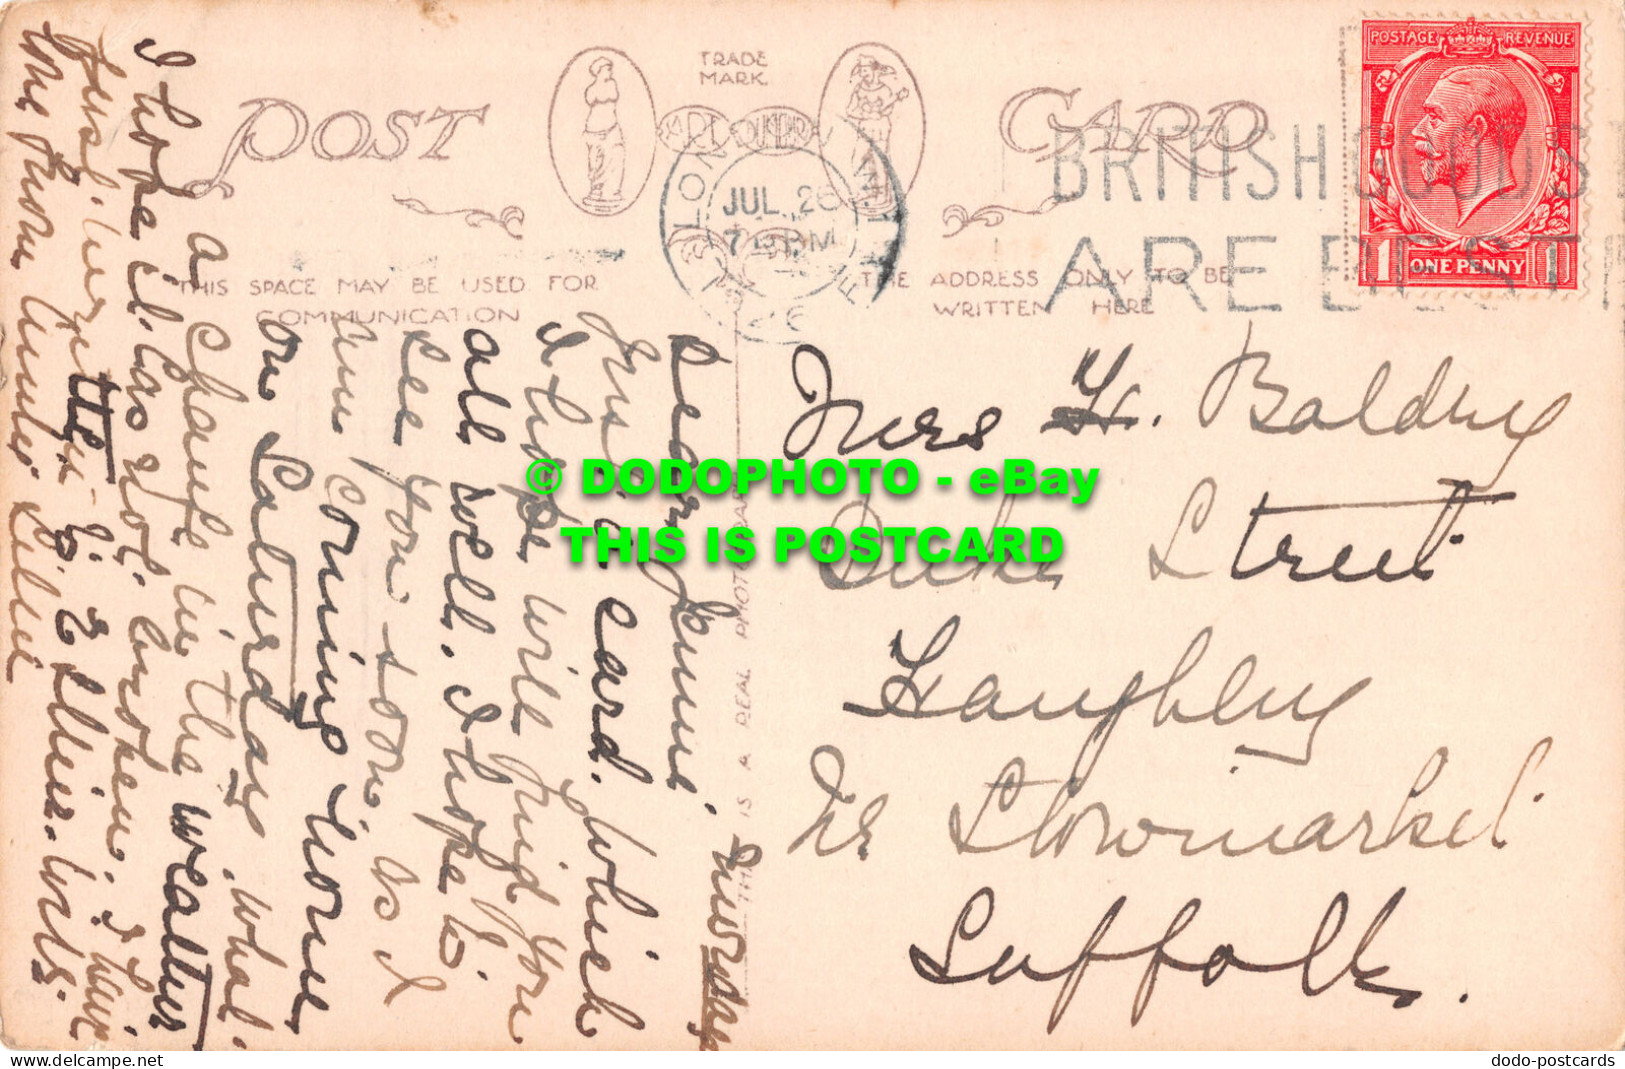 POST CARD
TRADE
MARK
POSTAGE REVENUE
1 ONE PENNY 1
LONDON
JUL 26
7 PM
BRITISH GOODS
ARE BEST
THIS SPACE MAY BE USED FOR
COMMUNICATION
THE ADDRESS ONLY TO BE
WRITTEN HERE
THIS IS A REAL PHOTOGRAPH
Thursday
Dear Jennie,
Just a card. Which
I hope will find you
all well. I hope to
see you soon. As I
am coming home
on Saturday. What
a change in the weather
I hope it has not broken. I have
just written to Ellie. With
love from Auntie
Mrs H. Baldry
Duke Street
Haughley
Nr Stowmarket
Suffolk.
© DODOPHOTO - eBay
THIS IS POSTCARD
www.delcampe.net
dodo-postcards